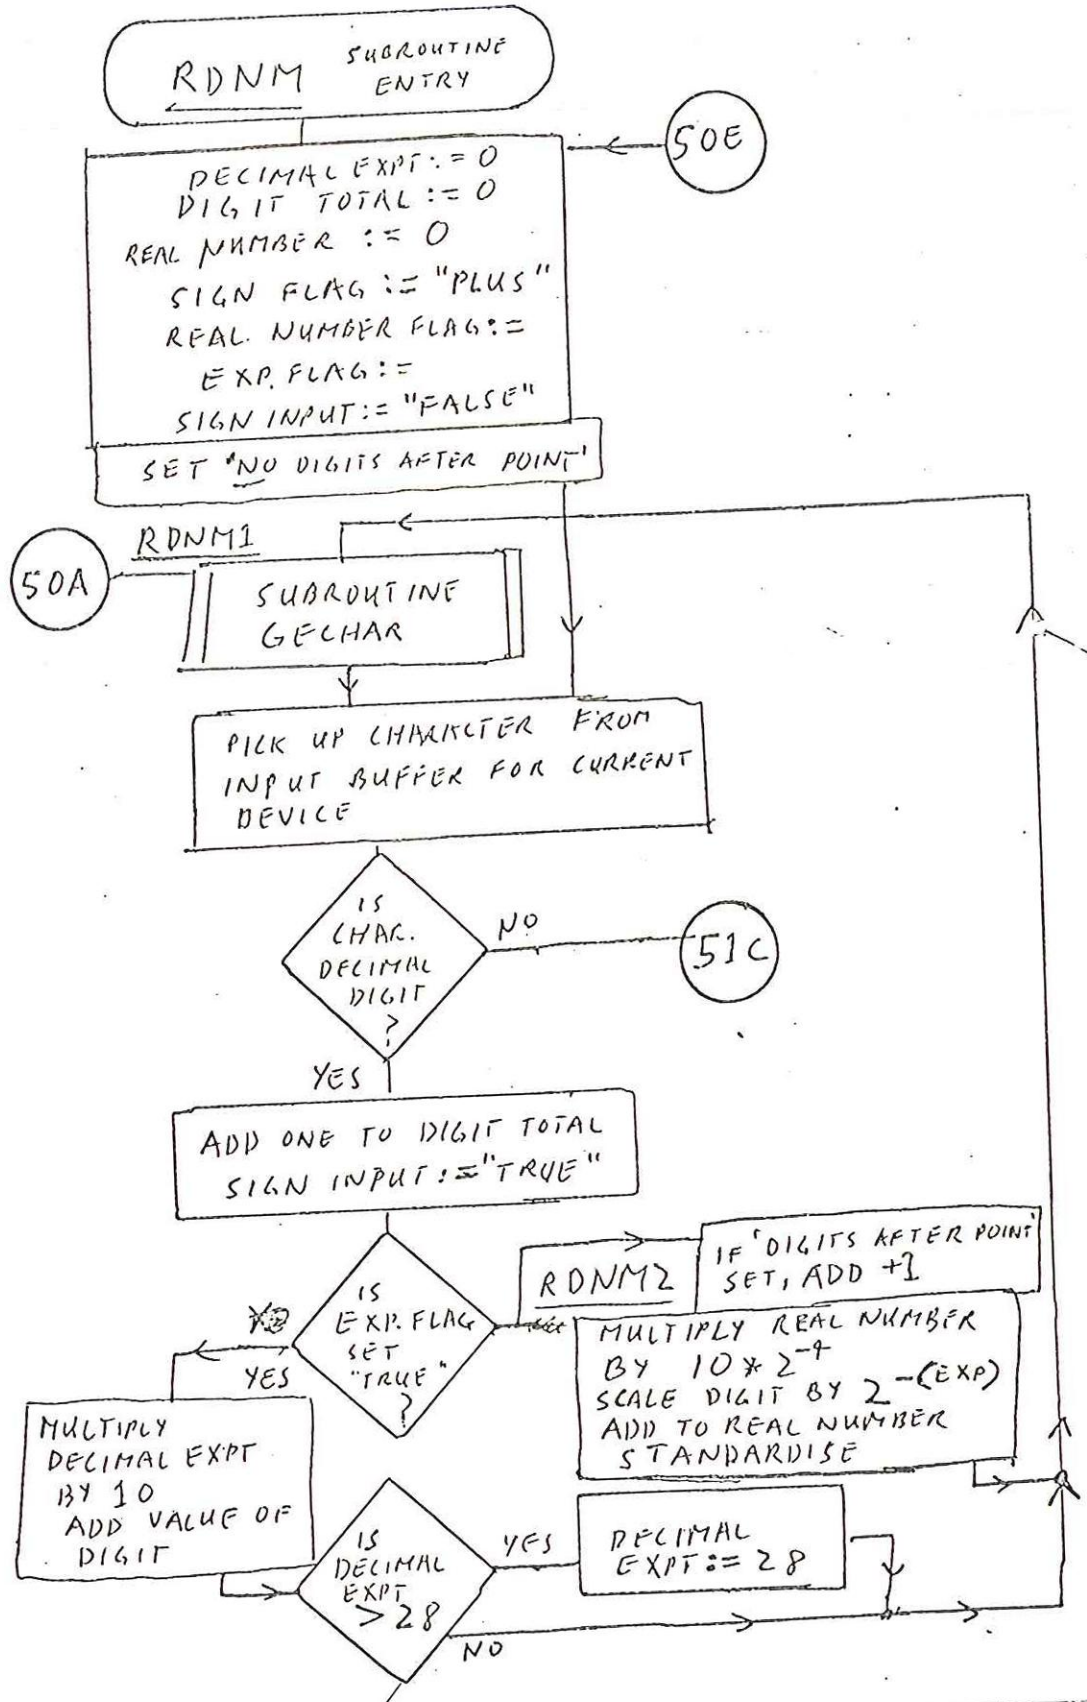 RDNM SUBROUTINE
ENTRY
50E
DECIMAL EXPT:=0
DIGIT TOTAL:=0
REAL NUMBER :=0
SIGN FLAG:="PLUS"
REAL NUMBER FLAG:=
EXP. FLAG:=
SIGN INPUT:="FALSE"
SET 'NO DIGITS AFTER POINT'
RDNM1
50A
SUBROUTINE
GECHAR
PICK UP CHARACTER FROM
INPUT BUFFER FOR CURRENT
DEVICE
IS
CHAR.
DECIMAL
DIGIT
?
NO
51C
YES
ADD ONE TO DIGIT TOTAL
SIGN INPUT:="TRUE"
IS
EXP. FLAG
SET
"TRUE"
?
YES
RDNM2
IF 'DIGITS AFTER POINT'
SET, ADD +1
MULTIPLY REAL NUMBER
BY 10*2⁻⁴
SCALE DIGIT BY 2⁻(EXP)
ADD TO REAL NUMBER
STANDARDISE
MULTIPLY
DECIMAL EXPT
BY 10
ADD VALUE OF
DIGIT
IS
DECIMAL
EXPT
>28
YES
DECIMAL
EXPT:=28
NO